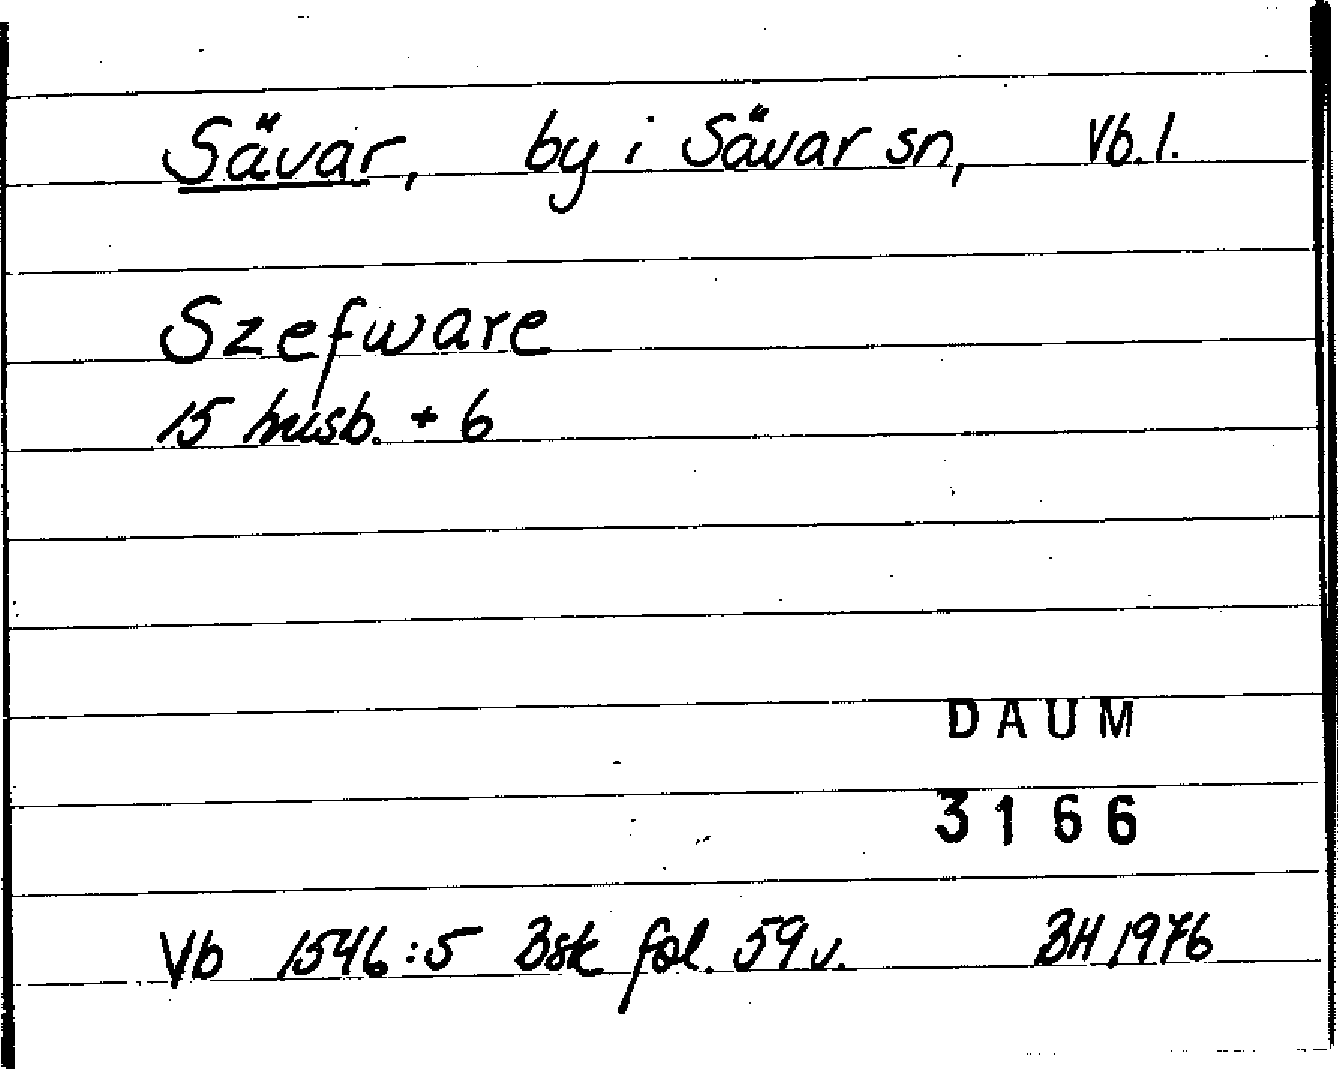 Sävar, by i Sävar sn, Vb. l.
Szefware
15 husb. + 6
DAUM
3166
Vb 1546:5 Bsk fol. 59 v. BH 1976